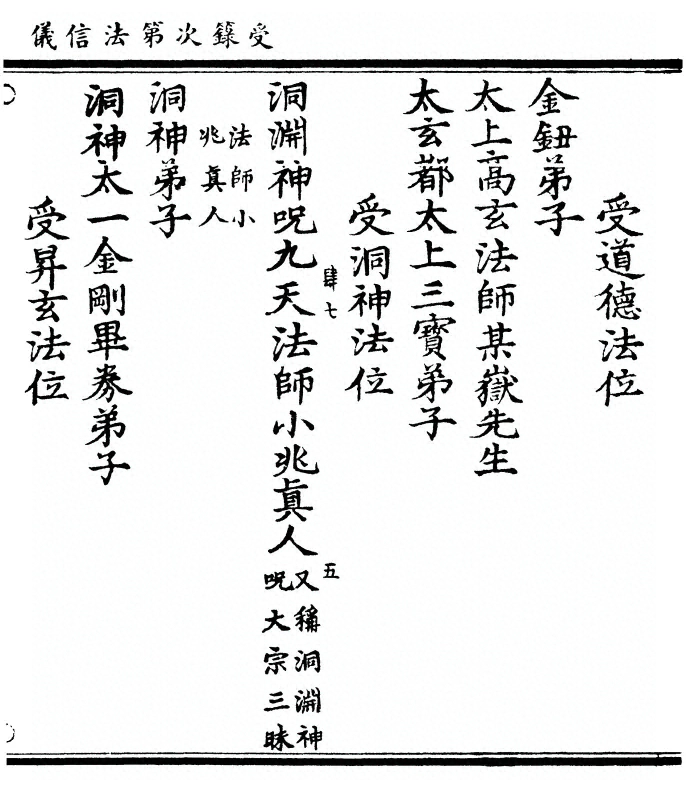 受籙次第法信儀
受道德法位
金鈕弟子
太上高玄法師某嶽先生
太玄都太上三寶弟子
受洞神法位
肆七
洞淵神呪九天法師小兆真人
五
又稱洞淵神
呪大宗三昧
法師小
兆真人
洞神弟子
洞神太一金剛畢券弟子
受昇玄法位